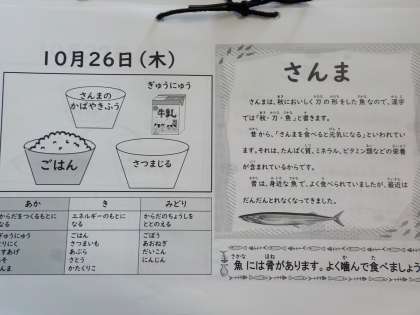 10月26日(木)
さんまの
かばやきふう
ぎゅうにゅう
牛乳
ごはん
さつまじる
あか
き
みどり
からだをつくるもとに
なる
エネルギーのもとに
なる
からだのちょうしを
ととのえる
ぎゅうにゅう
ごはん
さつまいも
あぶら
さとう
かたくりこ
ごぼう
あおねぎ
だいこん
にんじん
さんま
さんまは、秋においしく刀の形をした魚なので、漢字
では「秋・刀・魚」と書きます。
昔から、「さんまを食べると元気になる」といわれてい
ます。それは、たんぱく質、ミネラル、ビタミン類などの栄養
が含まれているからです。
昔は、身近な魚で、よく食べられていましたが、最近は
だんだんとれなくなってきました。
魚には骨があります。よく噛んで食べましょう